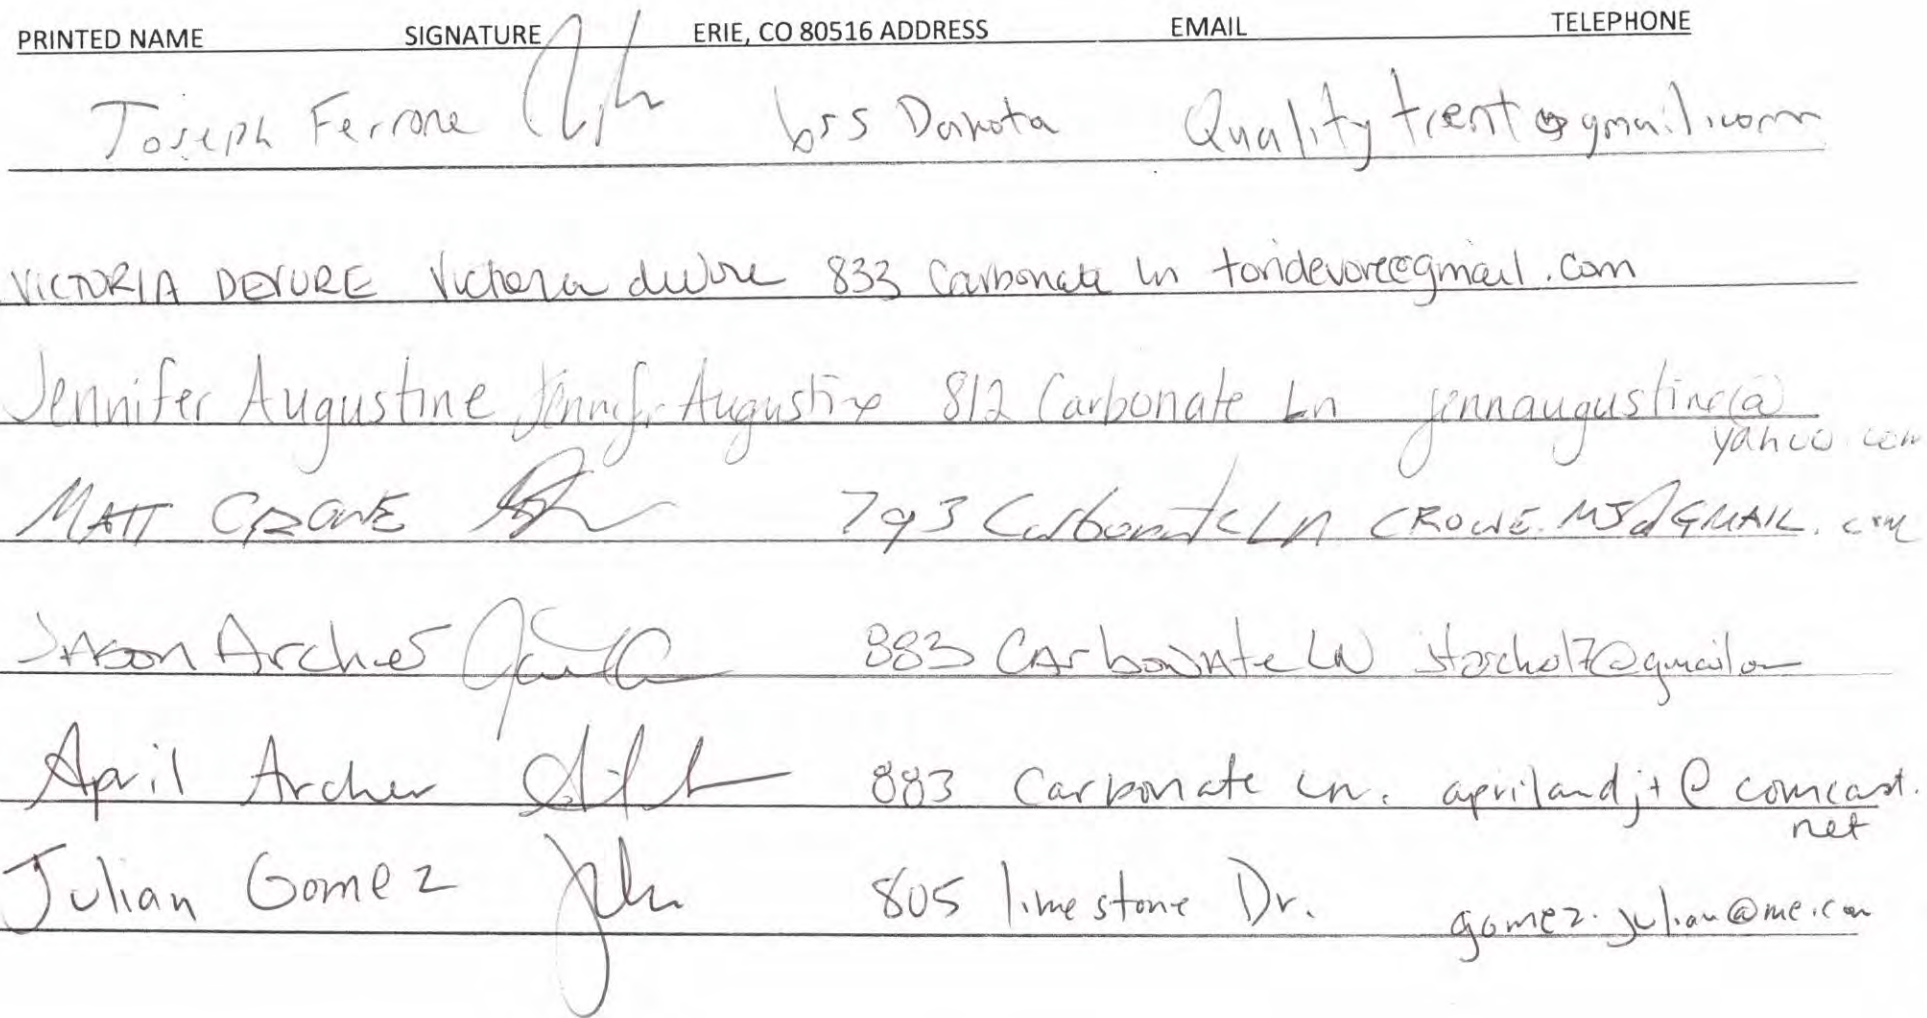 PRINTED NAME SIGNATURE ERIE, CO 80516 ADDRESS EMAIL TELEPHONE
Joseph Ferrone 655 Dakota Qualitytrent@gmail.com
VICTORIA DEVORE Victoria devore 833 Carbonate Ln toridevore@gmail.com
Jennifer Augustine Jennifer Augustine 812 Carbonate Ln jennaugustine@
yahoo.com
MATT CROWE 793 Carbonate LN CROWE.MJ@GMAIL.com
JASON Archer 883 CArboNAte LN
April Archer 883 Carbonate Ln. aprilandjt@comcast.
net
Julian Gomez 805 limestone Dr. gomez.julian@me.com